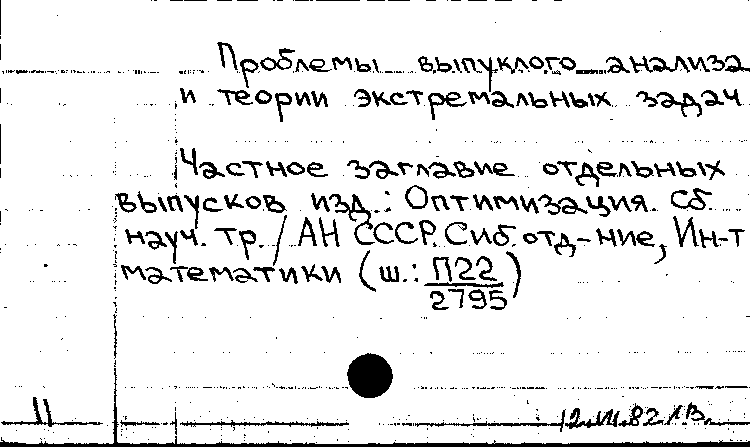 Проблемы выпуклого анализа
и теории экстремальных задач
Частное заглавие отдельных
выпусков изд.: Оптимизация. Сб.
науч. тр. / АН СССР. Сиб. отд-ние, Ин-т
математики (ш.: П22
2795)
11